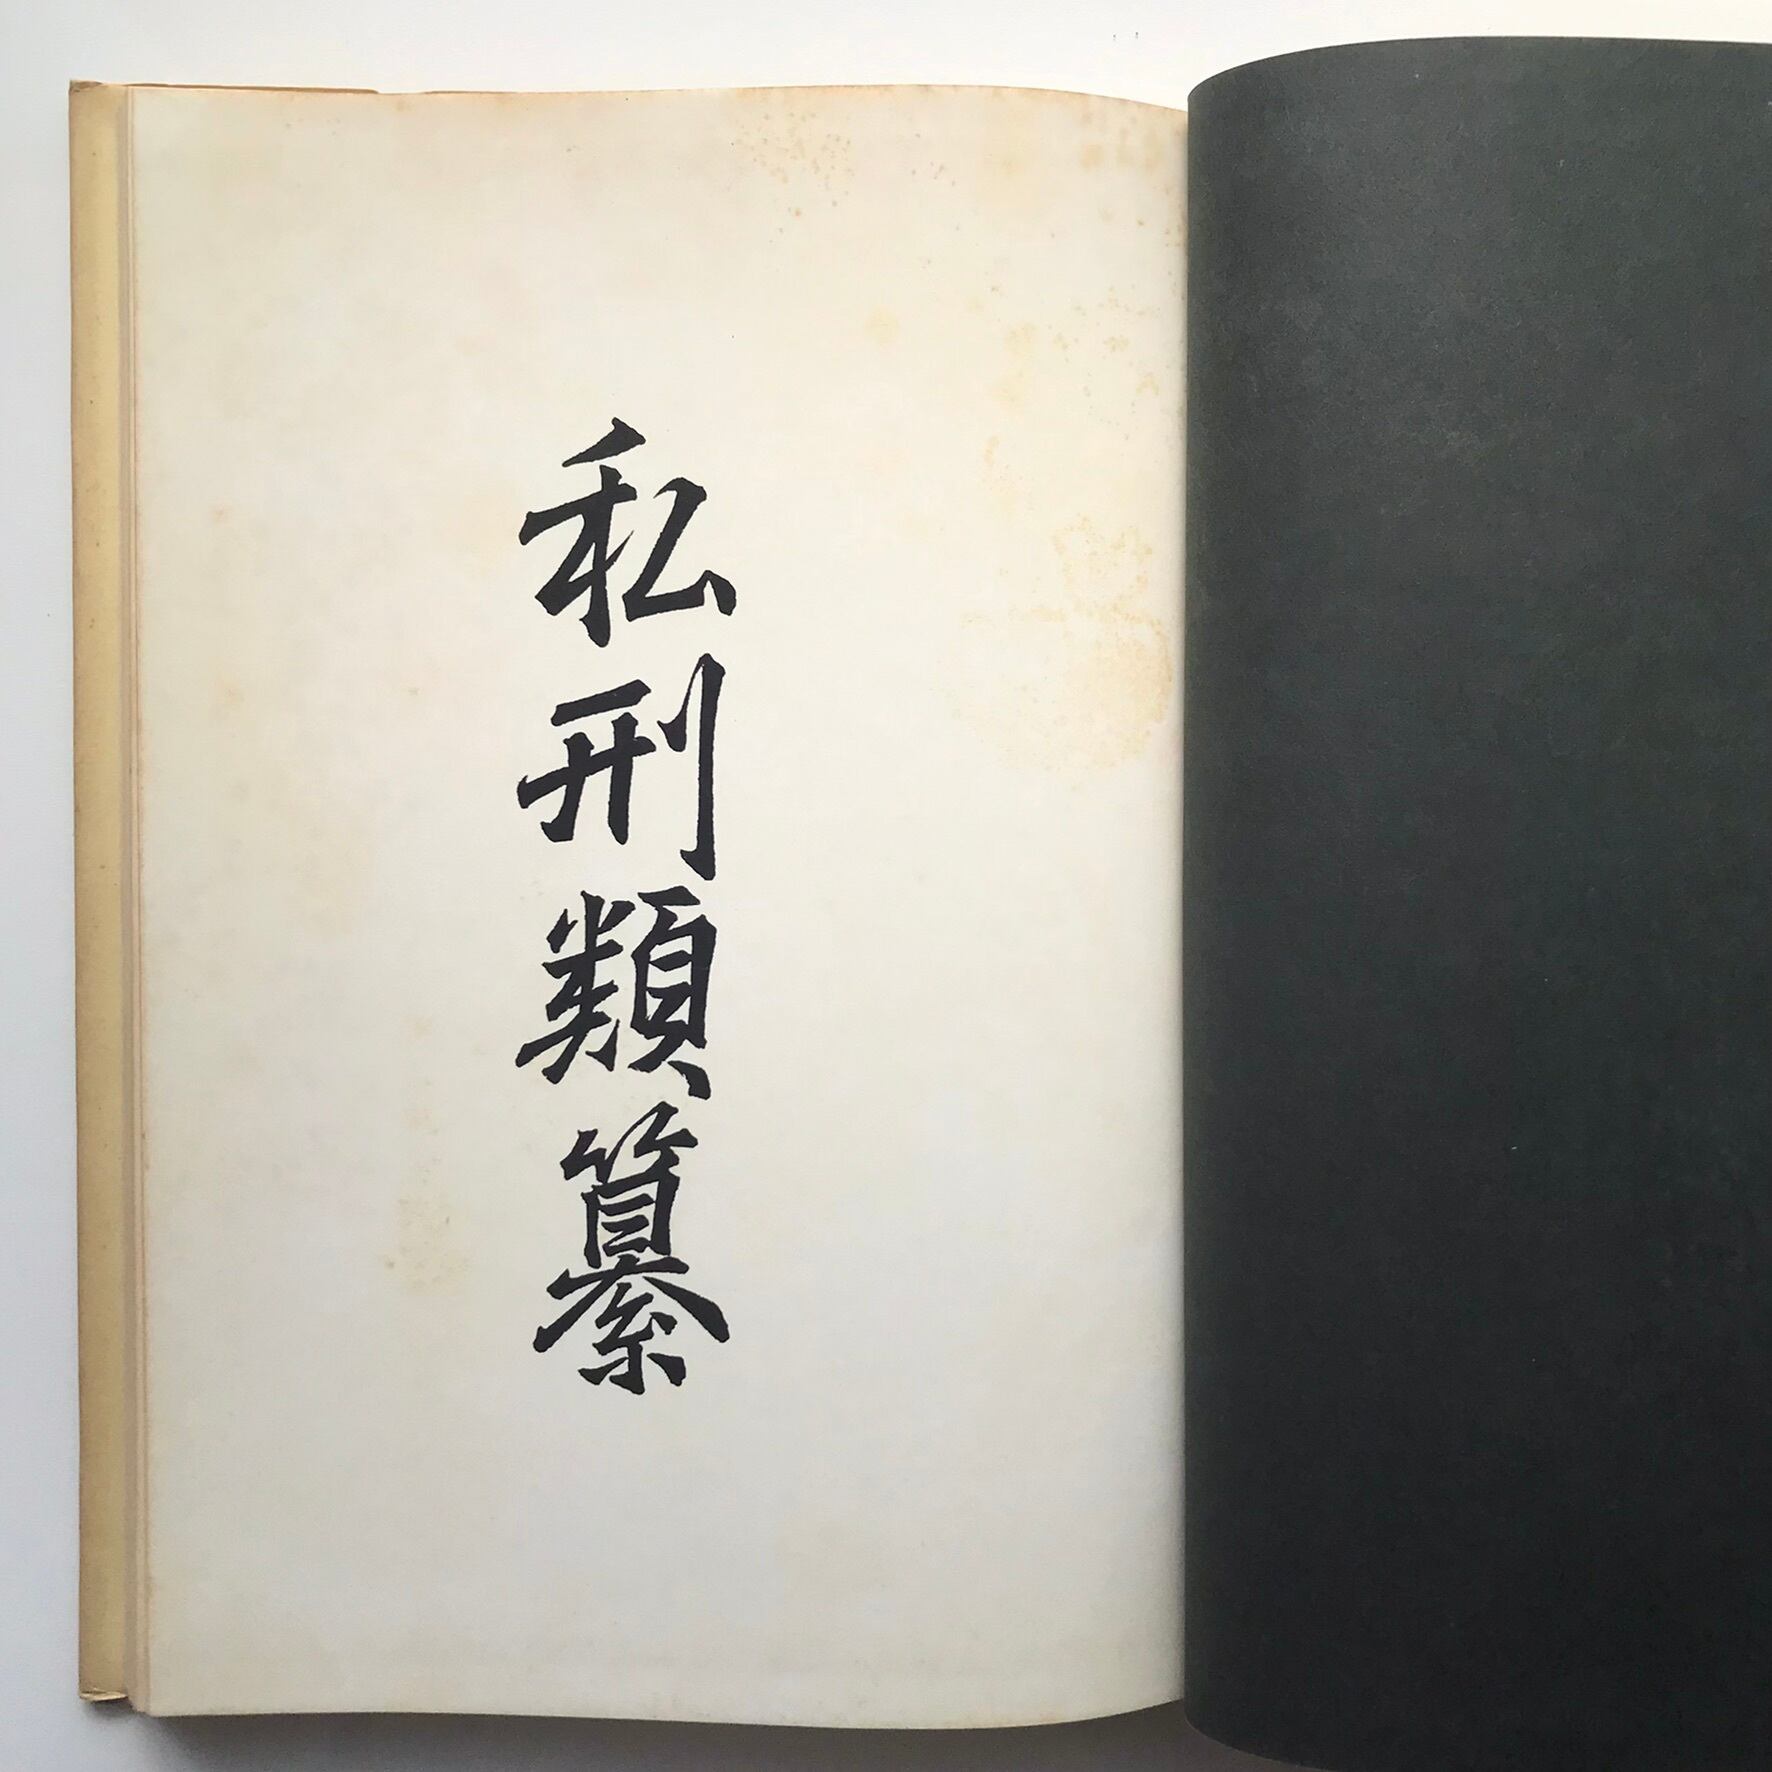 私刑類纂